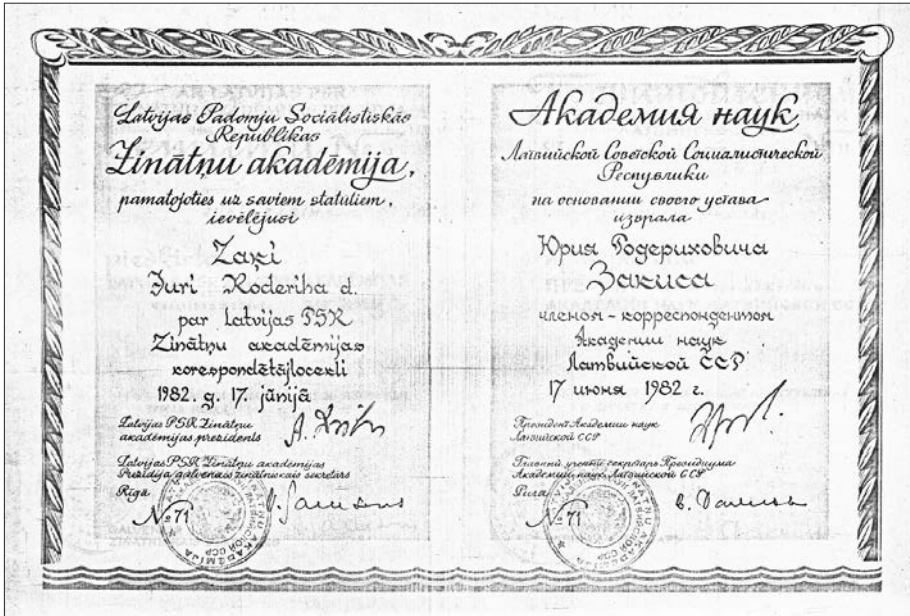 Latvijas Padomju Sociālistiskās
Republikas
Zinātņu akadēmija,
pamatojoties uz saviem statūtiem,
ievēlējusi
Zaķi
Juri Roderiha d.
par Latvijas PSR
Zinātņu akadēmijas
korespondētājlocekli
1982. g. 17. jūnijā
Latvijas PSR Zinātņu
akadēmijas prezidents
Latvijas PSR Zinātņu akadēmijas
Prezidija galvenais zinātniskais sekretārs
Rīga
№ 71
Академия наук
Латвийской Советской Социалистической
Республики
на основании своего устава
избрала
Юрия Родериховича
Закиса
членом-корреспондентом
Академии наук
Латвийской ССР
17 июня 1982 г.
Президент Академии наук
Латвийской ССР
Главный ученый секретарь Президиума
Академии наук Латвийской ССР
Рига
№ 71